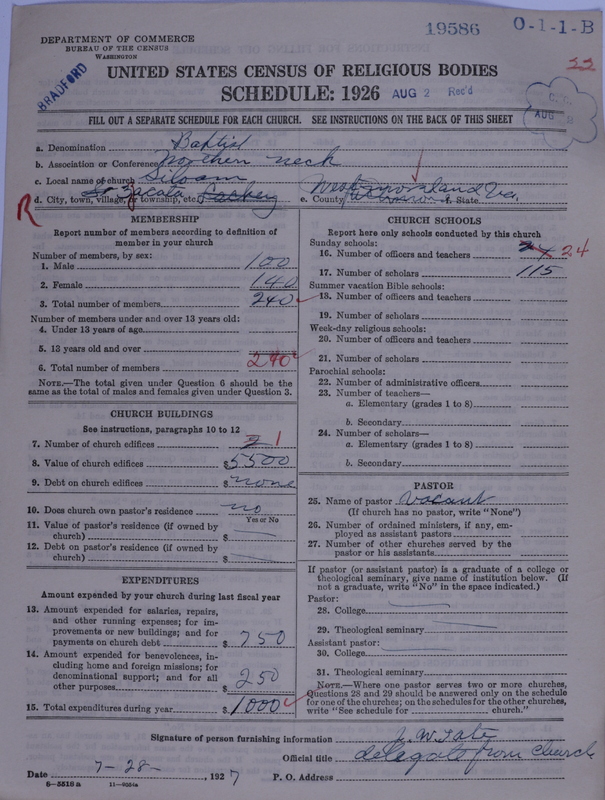 19586 0-1-1-B
DEPARTMENT OF COMMERCE
BUREAU OF THE CENSUS
WASHINGTON
BRADFORD
22
UNITED STATES CENSUS OF RELIGIOUS BODIES
SCHEDULE: 1926 AUG 2 Rec'd
C. C.
AUG 8
FILL OUT A SEPARATE SCHEDULE FOR EACH CHURCH. SEE INSTRUCTIONS ON THE BACK OF THIS SHEET
a. Denomination Baptist
b. Association or Conference Northern neck
c. Local name of church Siloam
d. City, town, village, or township, etc. Zacata e. County Westmoreland f. State Va.
R
MEMBERSHIP
Report number of members according to definition of
member in your church
Number of members, by sex:
1. Male 100
2. Female 140
3. Total number of members 240
Number of members under and over 13 years old:
4. Under 13 years of age
5. 13 years old and over
6. Total number of members 240
NOTE.—The total given under Question 6 should be the
same as the total of males and females given under Question 3.
CHURCH BUILDINGS
See instructions, paragraphs 10 to 12
7. Number of church edifices 2 1
8. Value of church edifices $5500
9. Debt on church edifices $none
10. Does church own pastor's residence no
Yes or No
11. Value of pastor's residence (if owned by
church) $
12. Debt on pastor's residence (if owned by
church) $
EXPENDITURES
Amount expended by your church during last fiscal year
13. Amount expended for salaries, repairs,
and other running expenses; for im-
provements or new buildings; and for
payments on church debt $750
14. Amount expended for benevolences, in-
cluding home and foreign missions; for
denominational support; and for all
other purposes $250
15. Total expenditures during year $1000
CHURCH SCHOOLS
Report here only schools conducted by this church
Sunday schools:
16. Number of officers and teachers 24 24
17. Number of scholars 115
Summer vacation Bible schools:
18. Number of officers and teachers
19. Number of scholars
Week-day religious schools:
20. Number of officers and teachers
21. Number of scholars
Parochial schools:
22. Number of administrative officers
23. Number of teachers—
a. Elementary (grades 1 to 8)
b. Secondary
24. Number of scholars—
a. Elementary (grades 1 to 8)
b. Secondary
PASTOR
25. Name of pastor Vacant
(If church has no pastor, write "None")
26. Number of ordained ministers, if any, em-
ployed as assistant pastors
27. Number of other churches served by the
pastor or his assistants
If pastor (or assistant pastor) is a graduate of a college or
theological seminary, give name of institution below. (If
not a graduate, write "No" in the space indicated.)
Pastor:
28. College
29. Theological seminary
Assistant pastor:
30. College
31. Theological seminary
NOTE.—Where one pastor serves two or more churches,
Questions 28 and 29 should be answered only on the schedule
for one of the churches; on the schedules for the other churches,
write "See schedule for church."
Signature of person furnishing information W. Tate
Official title delegate from Church
Date 7-28-, 1927 P. O. Address
6-5518 a